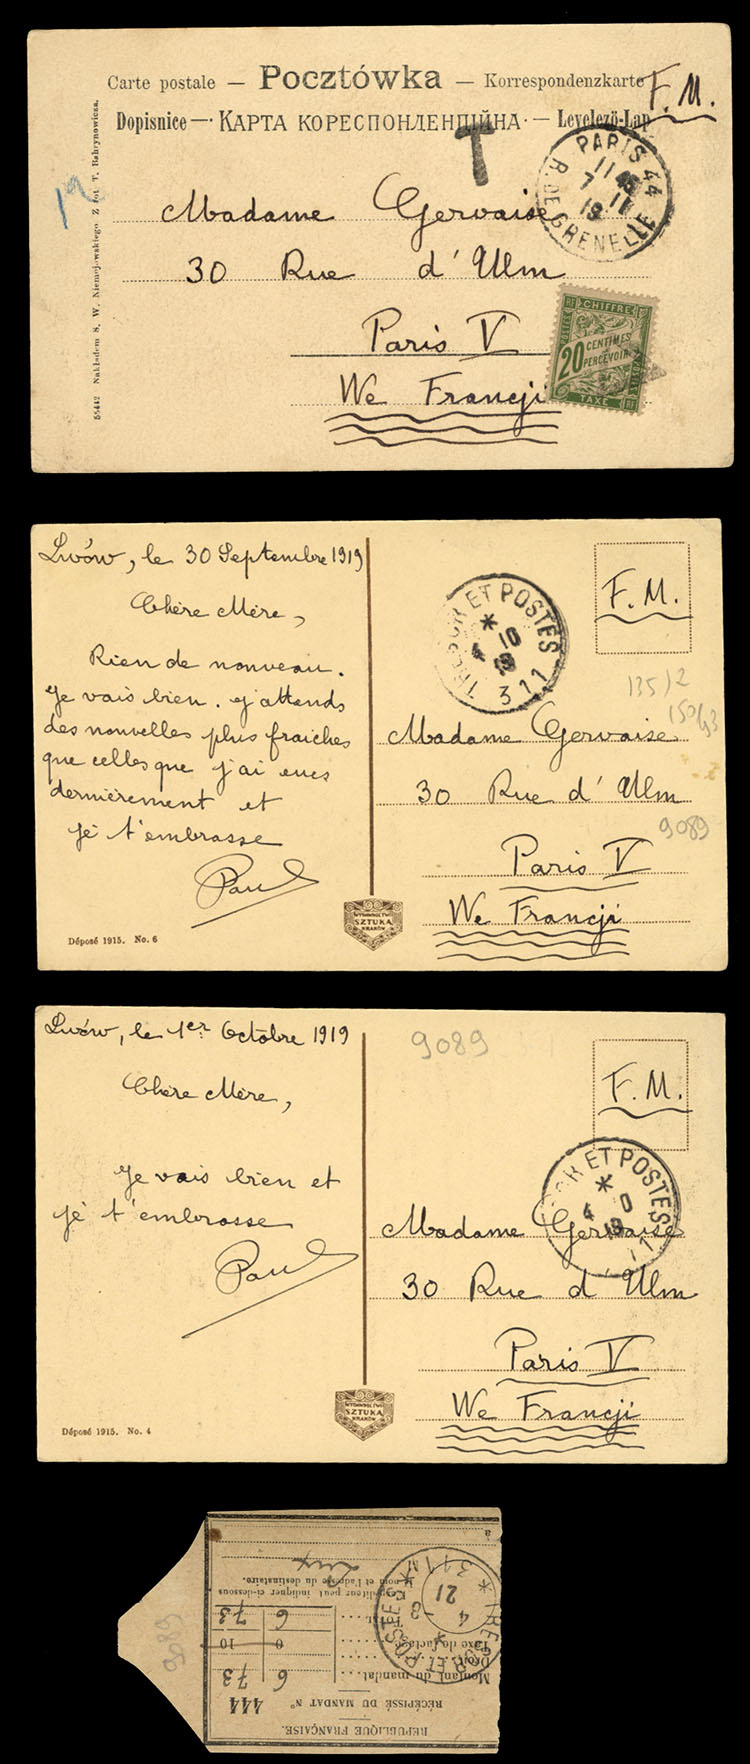 Carte postale — Pocztówka — Korrespondenzkarte
F.M.
Dopisnice — КАРТА КОРЕСПОНДЕНЦІЙНА — Levelező-Lap
T
PARIS 44
R. DE GRENELLE
19
Madame Gervaise
30 Rue d'Ulm
Paris V
We Francji
CHIFFRE
POSTES
20 CENTIMES
À PERCEVOIR
TAXE
RF
55442 Nakładem S. W. Niemojowskiego Z fot T. Bahrynowicza.
Lwów, le 30 Septembre 1919
Chère Mère,
Rien de nouveau.
Je vais bien. J'attends
des nouvelles plus fraiches
que celles que j'ai eues
dernièrement et
je t'embrasse
Paul
Déposé 1915. No. 6
WYDAWNICTWO
SZTUKA
KRAKÓW
TRESOR ET POSTES
311
F.M.
Madame Gervaise
30 Rue d'Ulm
9089
Paris V
We Francji
Lwów, le 1er Octobre 1919
Chère Mère,
Je vais bien et
je t'embrasse
Paul
Déposé 1915. No. 4
WYDAWNICTWO
SZTUKA
KRAKÓW
9089
F.M.
ET POSTES
Madame Gervaise
30 Rue d'Ulm
Paris V
We Francji
RÉPUBLIQUE FRANÇAISE.
RÉCÉPISSÉ DU MANDAT N° 444
Montant du mandat.... 6 73
Droit
Taxe de factage 0 10
6 73
L'expéditeur peut indiquer ci-dessous
le nom et l'adresse du destinataire.
à
9089